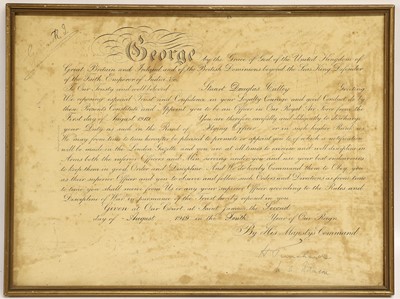 George by the Grace of God of the United Kingdom of
Great Britain and Ireland and of the British Dominions beyond the Seas King Defender
of the Faith Emperor of India &c
To Our Trusty and well beloved Stuart Douglas Culley Greeting
We reposing especial Trust and Confidence in your Loyalty Courage and good Conduct do by
these Presents Constitute and Appoint you to be an Officer in Our Royal Air Force from the
First day of August 1919. You are therefore carefully and diligently to discharge
your Duty as such in the Rank of Flying Officer or in such higher Rank as
We may from time to time hereafter be pleased to promote or appoint you to of which a notification
will be made in the London Gazette and you are at all times to exercise and well discipline in
Arms both the inferior Officers and Men serving under you and use your best endeavours
to keep them in good Order and Discipline. And We do hereby Command them to Obey you
as their superior Officer and you to observe and follow such Orders and Directions as from time
to time you shall receive from Us or any your superior Officer according to the Rules and
Discipline of War in pursuance of the Trust hereby reposed in you.
Given at Our Court at Saint James's the Second
day of August 1919 in the Tenth Year of Our Reign
By His Majesty's Command